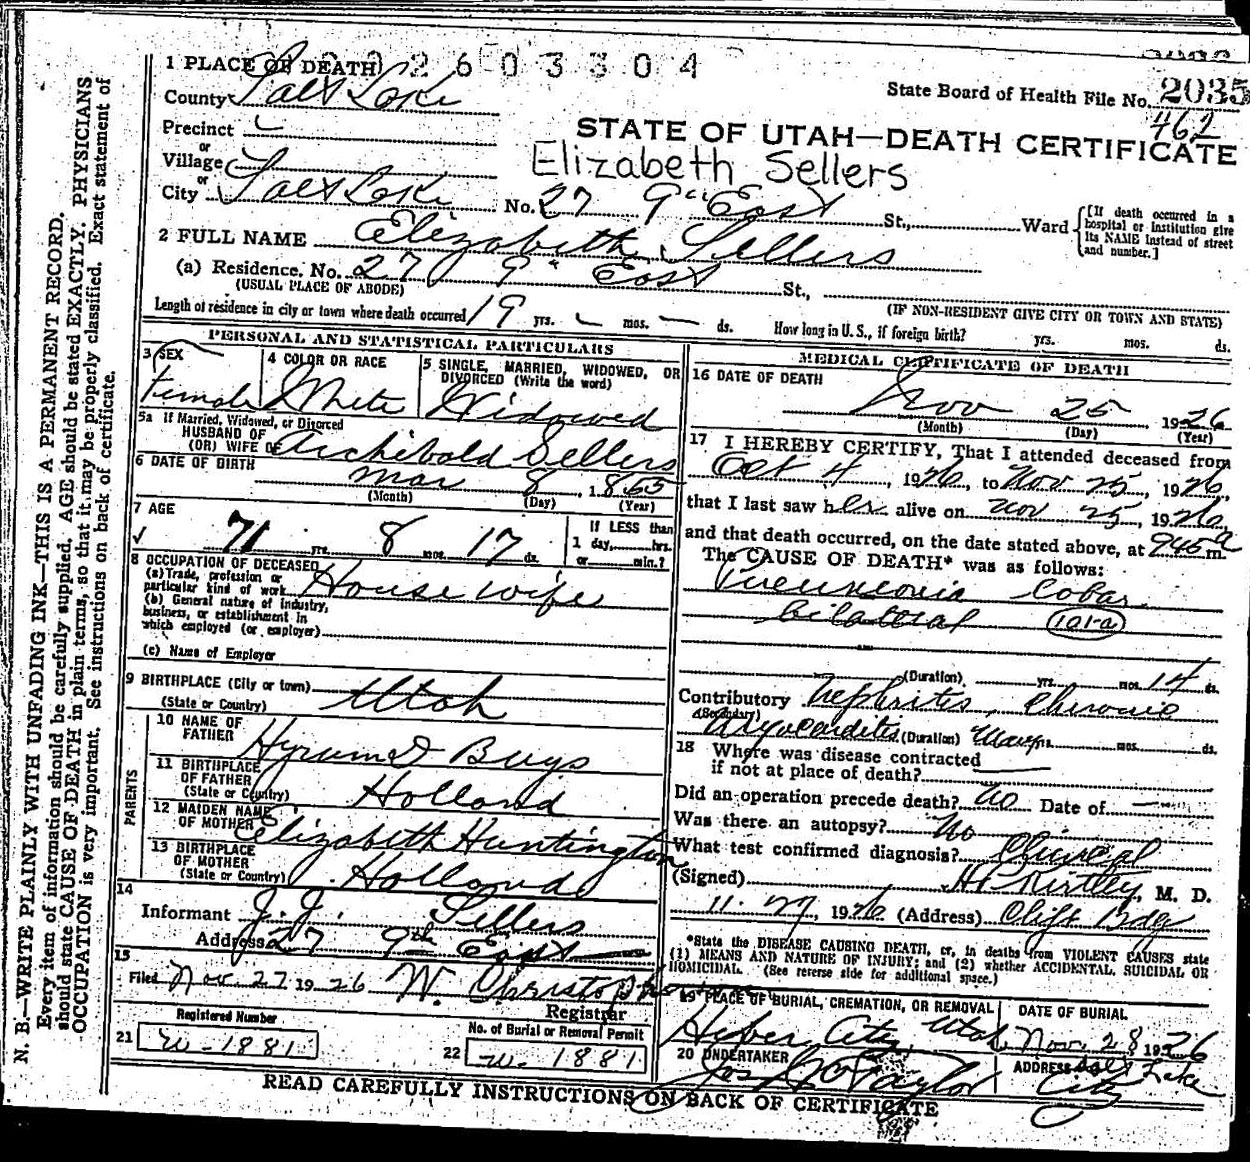 1 PLACE OF DEATH 2603304
County Salt Lake
State Board of Health File No. 2035
462
Precinct
or
Village
or
STATE OF UTAH—DEATH CERTIFICATE
Elizabeth Sellers
City Salt Lake No. 27 9" East St., Ward
[If death occurred in a hospital or institution give its NAME instead of street and number.]
2 FULL NAME Elizabeth Sellers
(a) Residence. No. 27 9" East St.,
(USUAL PLACE OF ABODE)
(IF NON-RESIDENT GIVE CITY OR TOWN AND STATE)
Length of residence in city or town where death occurred 19 yrs. — mos. — ds.
How long in U. S., if foreign birth? yrs. mos. ds.
PERSONAL AND STATISTICAL PARTICULARS
3 SEX Female
4 COLOR OR RACE White
5 SINGLE, MARRIED, WIDOWED, OR DIVORCED (Write the word) Widowed
5a If Married, Widowed, or Divorced
HUSBAND OF
(OR) WIFE OF Archibald Sellers
6 DATE OF BIRTH Mar 8, 1855
(Month) (Day) (Year)
7 AGE
71 yrs. 8 mos. 17 ds.
If LESS than
1 day,......hrs.
or......min.?
8 OCCUPATION OF DECEASED
(a) Trade, profession or
particular kind of work House wife
(b) General nature of industry,
business, or establishment in
which employed (or employer)
(c) Name of Employer
9 BIRTHPLACE (City or town)
(State or Country) Utah
PARENTS
10 NAME OF
FATHER Hyrum D Buys
11 BIRTHPLACE
OF FATHER
(State or Country) Holland
12 MAIDEN NAME
OF MOTHER Elizabeth Huntington
13 BIRTHPLACE
OF MOTHER
(State or Country) Holland
14
Informant J. J. Sellers
Address 27 9th East
15
Filed Nov. 27 1926 W. Christopherson
Registrar
Registered Number
21 w-1881
No. of Burial or Removal Permit
22 w-1881
MEDICAL CERTIFICATE OF DEATH
16 DATE OF DEATH
Nov 25 1926
(Month) (Day) (Year)
17 I HEREBY CERTIFY, That I attended deceased from
Oct 4, 1926, to Nov 25, 1926,
that I last saw her alive on Nov 25, 1926,
and that death occurred, on the date stated above, at 945 a m.
The CAUSE OF DEATH* was as follows:
Pneumonia Lobar
bilateral 101-a
(Duration) yrs. mos. 14 ds.
Contributory Nephritis, Chronic
(Secondary)
Myocarditis (Duration) Many yrs. mos. ds.
18 Where was disease contracted
if not at place of death?
Did an operation precede death? No Date of —
Was there an autopsy? No
What test confirmed diagnosis? Clinical
(Signed) H P Kirtley, M. D.
11-27, 1926 (Address) Clift Bdg
*State the DISEASE CAUSING DEATH, or, in deaths from VIOLENT CAUSES state
(1) MEANS AND NATURE OF INJURY; and (2) whether ACCIDENTAL, SUICIDAL OR
HOMICIDAL. (See reverse side for additional space.)
19 PLACE OF BURIAL, CREMATION, OR REMOVAL
Heber City, Utah
DATE OF BURIAL
Nov. 28 1926
20 UNDERTAKER
Jos Wm Taylor
ADDRESS Salt Lake
City
READ CAREFULLY INSTRUCTIONS ON BACK OF CERTIFICATE
N. B.—WRITE PLAINLY WITH UNFADING INK—THIS IS A PERMANENT RECORD.
Every item of information should be carefully supplied. AGE should be stated EXACTLY. PHYSICIANS
should state CAUSE OF DEATH in plain terms, so that it may be properly classified. Exact statement of
OCCUPATION is very important. See instructions on back of certificate.